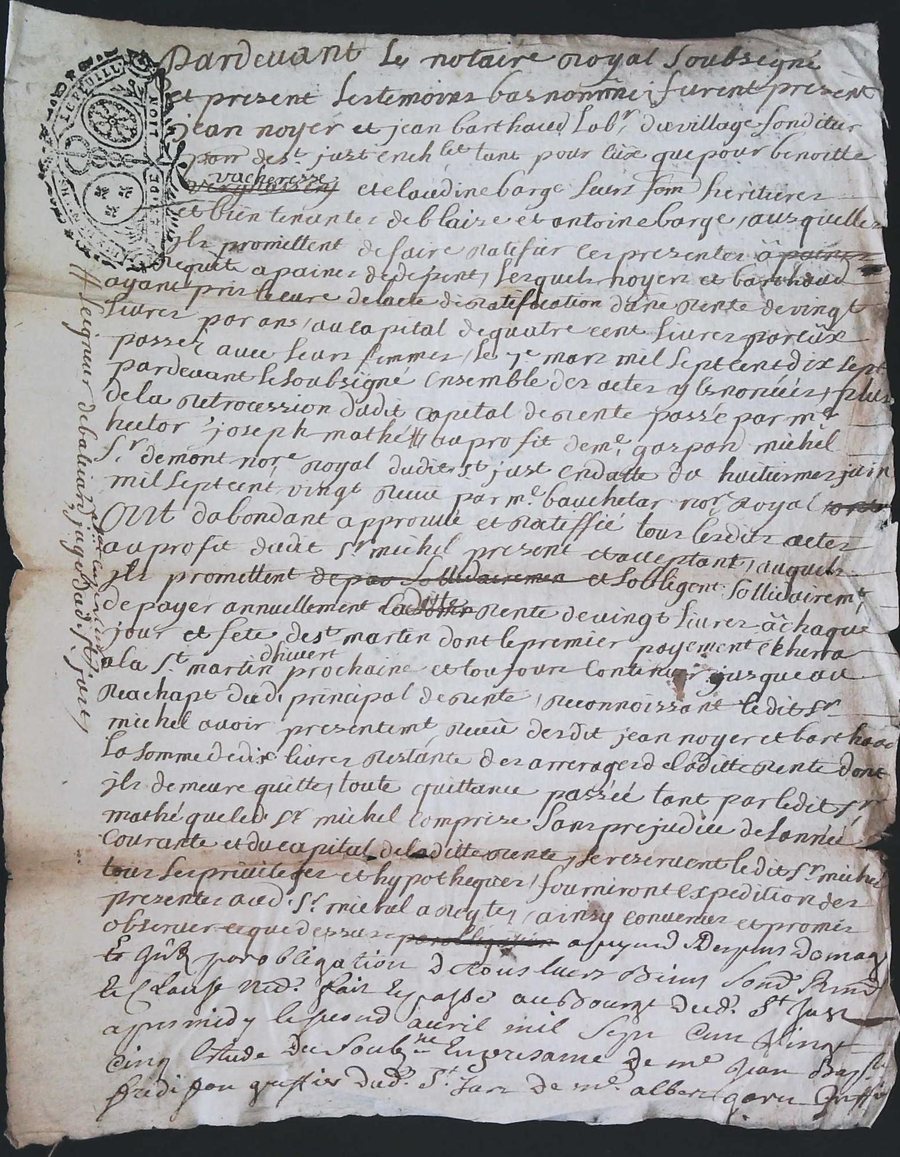 Pardevant Le notaire Royal Soubsigné
et present Lestemoins basnommés furent present
jean noyer et jean barthaud Labr. du village fonditur
parr de st. just en ch let tant pour Eux que pour benoitte
vacheresse et claudine barge Leurs fem heritieres
et bien tenantes de blaise et antoine barge, ausquelles
jls promettent de faire Ratifier ces presentes à
Requete a paines de depent, Lesquels noyer et barthaud
ayant pris lecture de lacte de Ratification dune Rente de vingt
Livres par ans, au capital de quatre cent Livres par Eux
passée avec leurs femmes, le 7e mars mil sept cent dix sept
pardevant le soubsigné Ensemble des actes y Enoncées, plus
de la Retrocession dudit capital de Rente passé par me
hector joseph mathé # au profit de me. gaspard michel
Sr. demont nore. Royal dudit st just en datte du huitiemes juin
mil sept cent vingt Receu par me. bauchetar nore. Royal
Ont dabondant approuvé et Ratiffié tous lesdits actes
au profit dudit Sr. michel present et acceptant, auquel
jls promettent et Sobligent Sollidairemt
de payer annuellement Rente de vingt livres à chaque
jour et fete de st. martin dont le premier payement Echerra
a la St. martin dhivert prochaine et toujours continuer jusque au
Reachapt dud. principal de Rente, Reconnoissant le dit Sr.
michel avoir presentemt. Receu desdit jean noyer et barthaud
La somme de dix livres Restante des arrerages de laditte Rente dont
jls demeure quitte, toute quittance passée tant par ledit Sr
mathé que led. Sr. michel comprise Sans prejudice de Lannée
courante et du capital de laditte Rente, se reservent le dit Sr. michel
tous ses privileges et hypotheques, fourniront expedition des
presentes aud. Sr. michel a Reqte, ainsy convenues et promis
observer ce que dessus a peyne de tous despens domag
et par obligation de tous leurs Biens
et clause fait et passé au Bourg dud. St. Just
apres midy le second avril mil sept cent vingt
cinq Estude du soubsne En presance de me jean
greffier dud. St. Just de me albert
# seigneur de
juge dud. st. just,